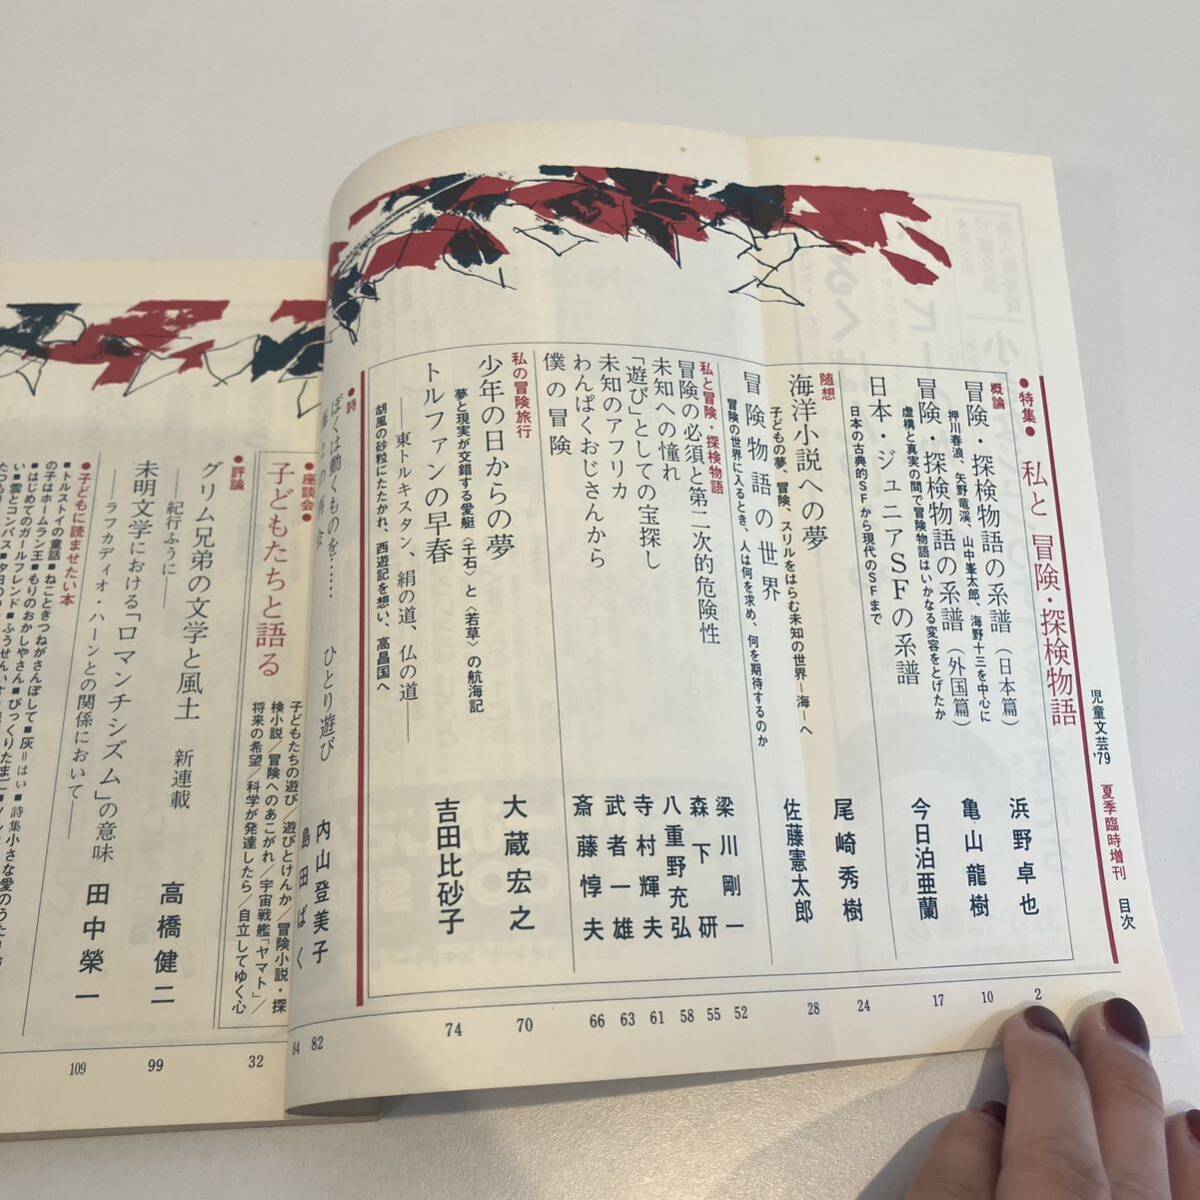 児童文芸'79 夏季臨時増刊 目次
●特集● 私と冒険・探検物語
概論
冒険・探検物語の系譜(日本篇) 浜野卓也 2
押川春浪、矢野竜渓、山中峯太郎、海野十三を中心に
冒険・探検物語の系譜(外国篇) 亀山龍樹 10
虚構と真実の間で冒険物語はいかなる変容をとげたか
日本・ジュニアSFの系譜 今日泊亜蘭 17
日本の古典的SFから現代のSFまで
随想
海洋小説への夢 尾崎秀樹 24
子どもの夢、冒険、スリルをはらむ未知の世界―海―へ
冒険物語の世界 佐藤憲太郎 28
冒険の世界に入るとき、人は何を求め、何を期待するのか
私と冒険・探検物語
冒険の必須と第二次的危険性 梁川剛一 52
未知への憧れ 森下研 55
「遊び」としての宝探し 八重野充弘 58
未知のアフリカ 寺村輝夫 61
わんぱくおじさんから 武者一雄 63
僕の冒険 斎藤惇夫 66
私の冒険旅行
少年の日からの夢 大蔵宏之 70
夢と現実が交錯する愛艇〈千石〉と〈若草〉の航海記
トルファンの早春 吉田比砂子 74
――東トルキスタン、絹の道、仏の道――
胡風の砂粒にたたかれ、西遊記を想い、高昌国へ
●詩
ぼくは動くものを…… ひとり遊び 内山登美子 82
島田ばく 84
●座談会●
子どもたちと語る 32
子どもたちの遊び/遊びとけんか/冒険小説・探
検小説/冒険へのあこがれ/宇宙戦艦「ヤマト」/
将来の希望/科学が発達したら/自立してゆく心
●評論
グリム兄弟の文学と風土 新連載 高橋健二 99
――紀行ふうに――
未明文学における「ロマンチシズム」の意味 田中榮一 109
――ラフカディオ・ハーンとの関係において――
●子どもに読ませたい本
■トルストイの童話■ねこときつねがさんぽして■灰=はい■詩集小さな愛のうた
の子はホームラン王■もりのおかしやさん■びっくりたまご
■はじめてのガールフレンド■ふうせん
い■雲とコンパス■夕日の